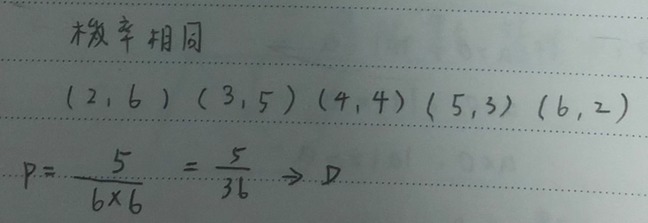 機率相同
(2,6) (3,5) (4,4) (5,3) (6,2)
P = 5/(6×6) = 5/36 → D